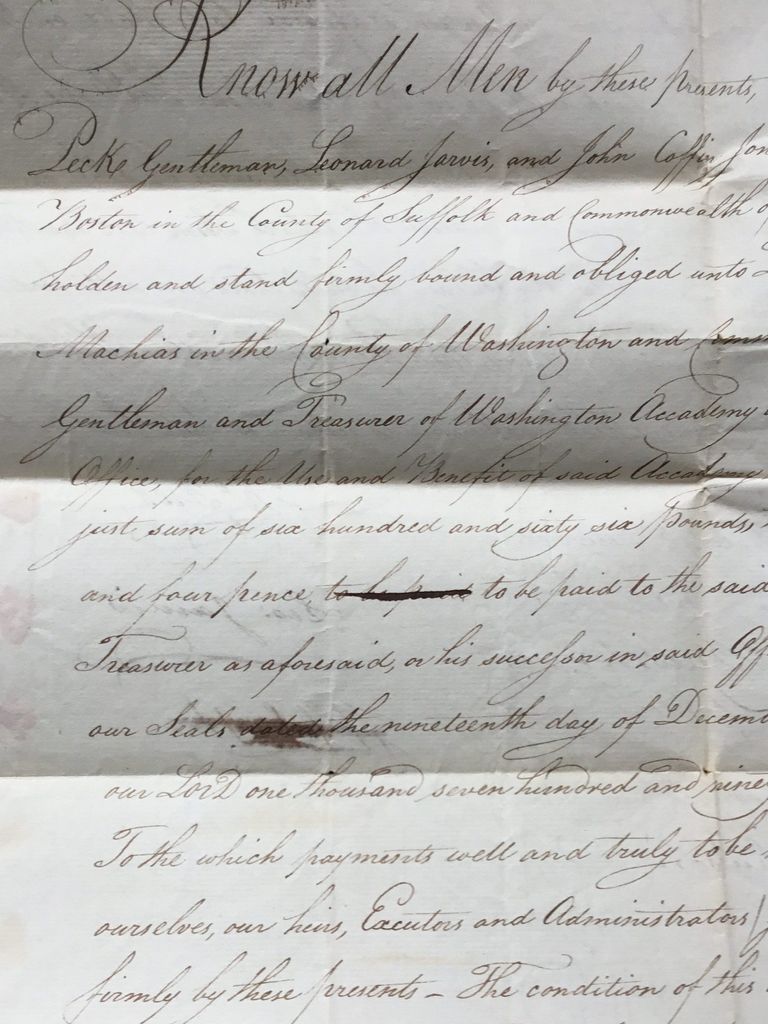 Know all Men by these presents,
Peck Gentleman, Leonard Jarvis, and John Coffin Jon
Boston in the County of Suffolk and Commonwealth of
holden and stand firmly bound and obliged unto
Machias in the County of Washington and
Gentleman and Treasurer of Washington Accademy
Office, for the Use and Benefit of said Accademy
just sum of six hundred and sixty six Pounds,
and four pence to be paid to be paid to the said
Treasurer as aforesaid, or his successor in said Off
our Seals dated the nineteenth day of Decem
our LORD one thousand seven hundred and nine
To the which payments well and truly to be
ourselves, our heirs, Executors and Administrators
firmly by these presents – The condition of this